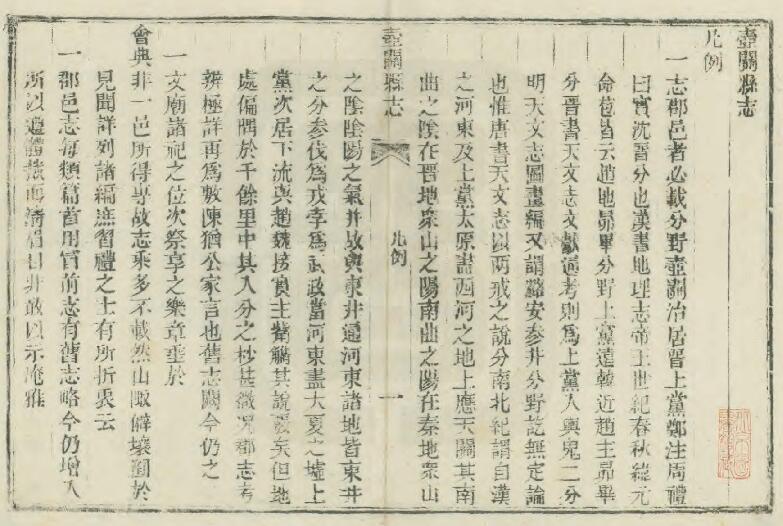 壺關縣志
凡例
一志郡邑者必載分野壺關治居晉上黨鄭注周禮
曰實沈晉分也漢書地理志帝王世紀春秋緯元
命苞皆云趙地昴畢分野上黨遠韓近趙主昴畢
分晉書天文志文獻通考則為上黨入輿鬼二分
明天文志圖書編又謂潞安參井分野訖無定論
也惟唐書天文志以兩戒之說分南北紀謂自漢
之河東及上黨太原盡西河之地上應天關其南
曲之陰在晉地眾山之陽南曲之陽在秦地眾山
壺關縣志
凡例
一
之陰陰陽之氣并故與東井通河東諸地皆東井
之分參伐為戎事為武政當河東盡大夏之墟上
黨次居下流與趙魏接實主觜觿其說覈矣但地
處偏隅於千餘里中其入分之杪甚微況郡志考
辨極詳再為敷陳猶公家言也舊志闕今仍之
一文廟諸祀之位次祭享之樂章垂於
會典非一邑所得專故志乘多不載然山陬僻壤罰於
見聞詳列諸編庶習禮之士有所折衷云
一郡邑志每類篇首用官前志有舊志略今仍增入
所以遵體裁而清眉目非敢以示淹雅